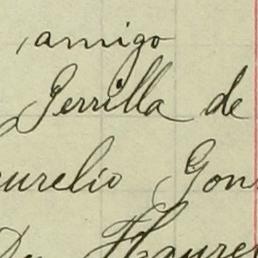 amigo
Perrilla de
urelio Gon